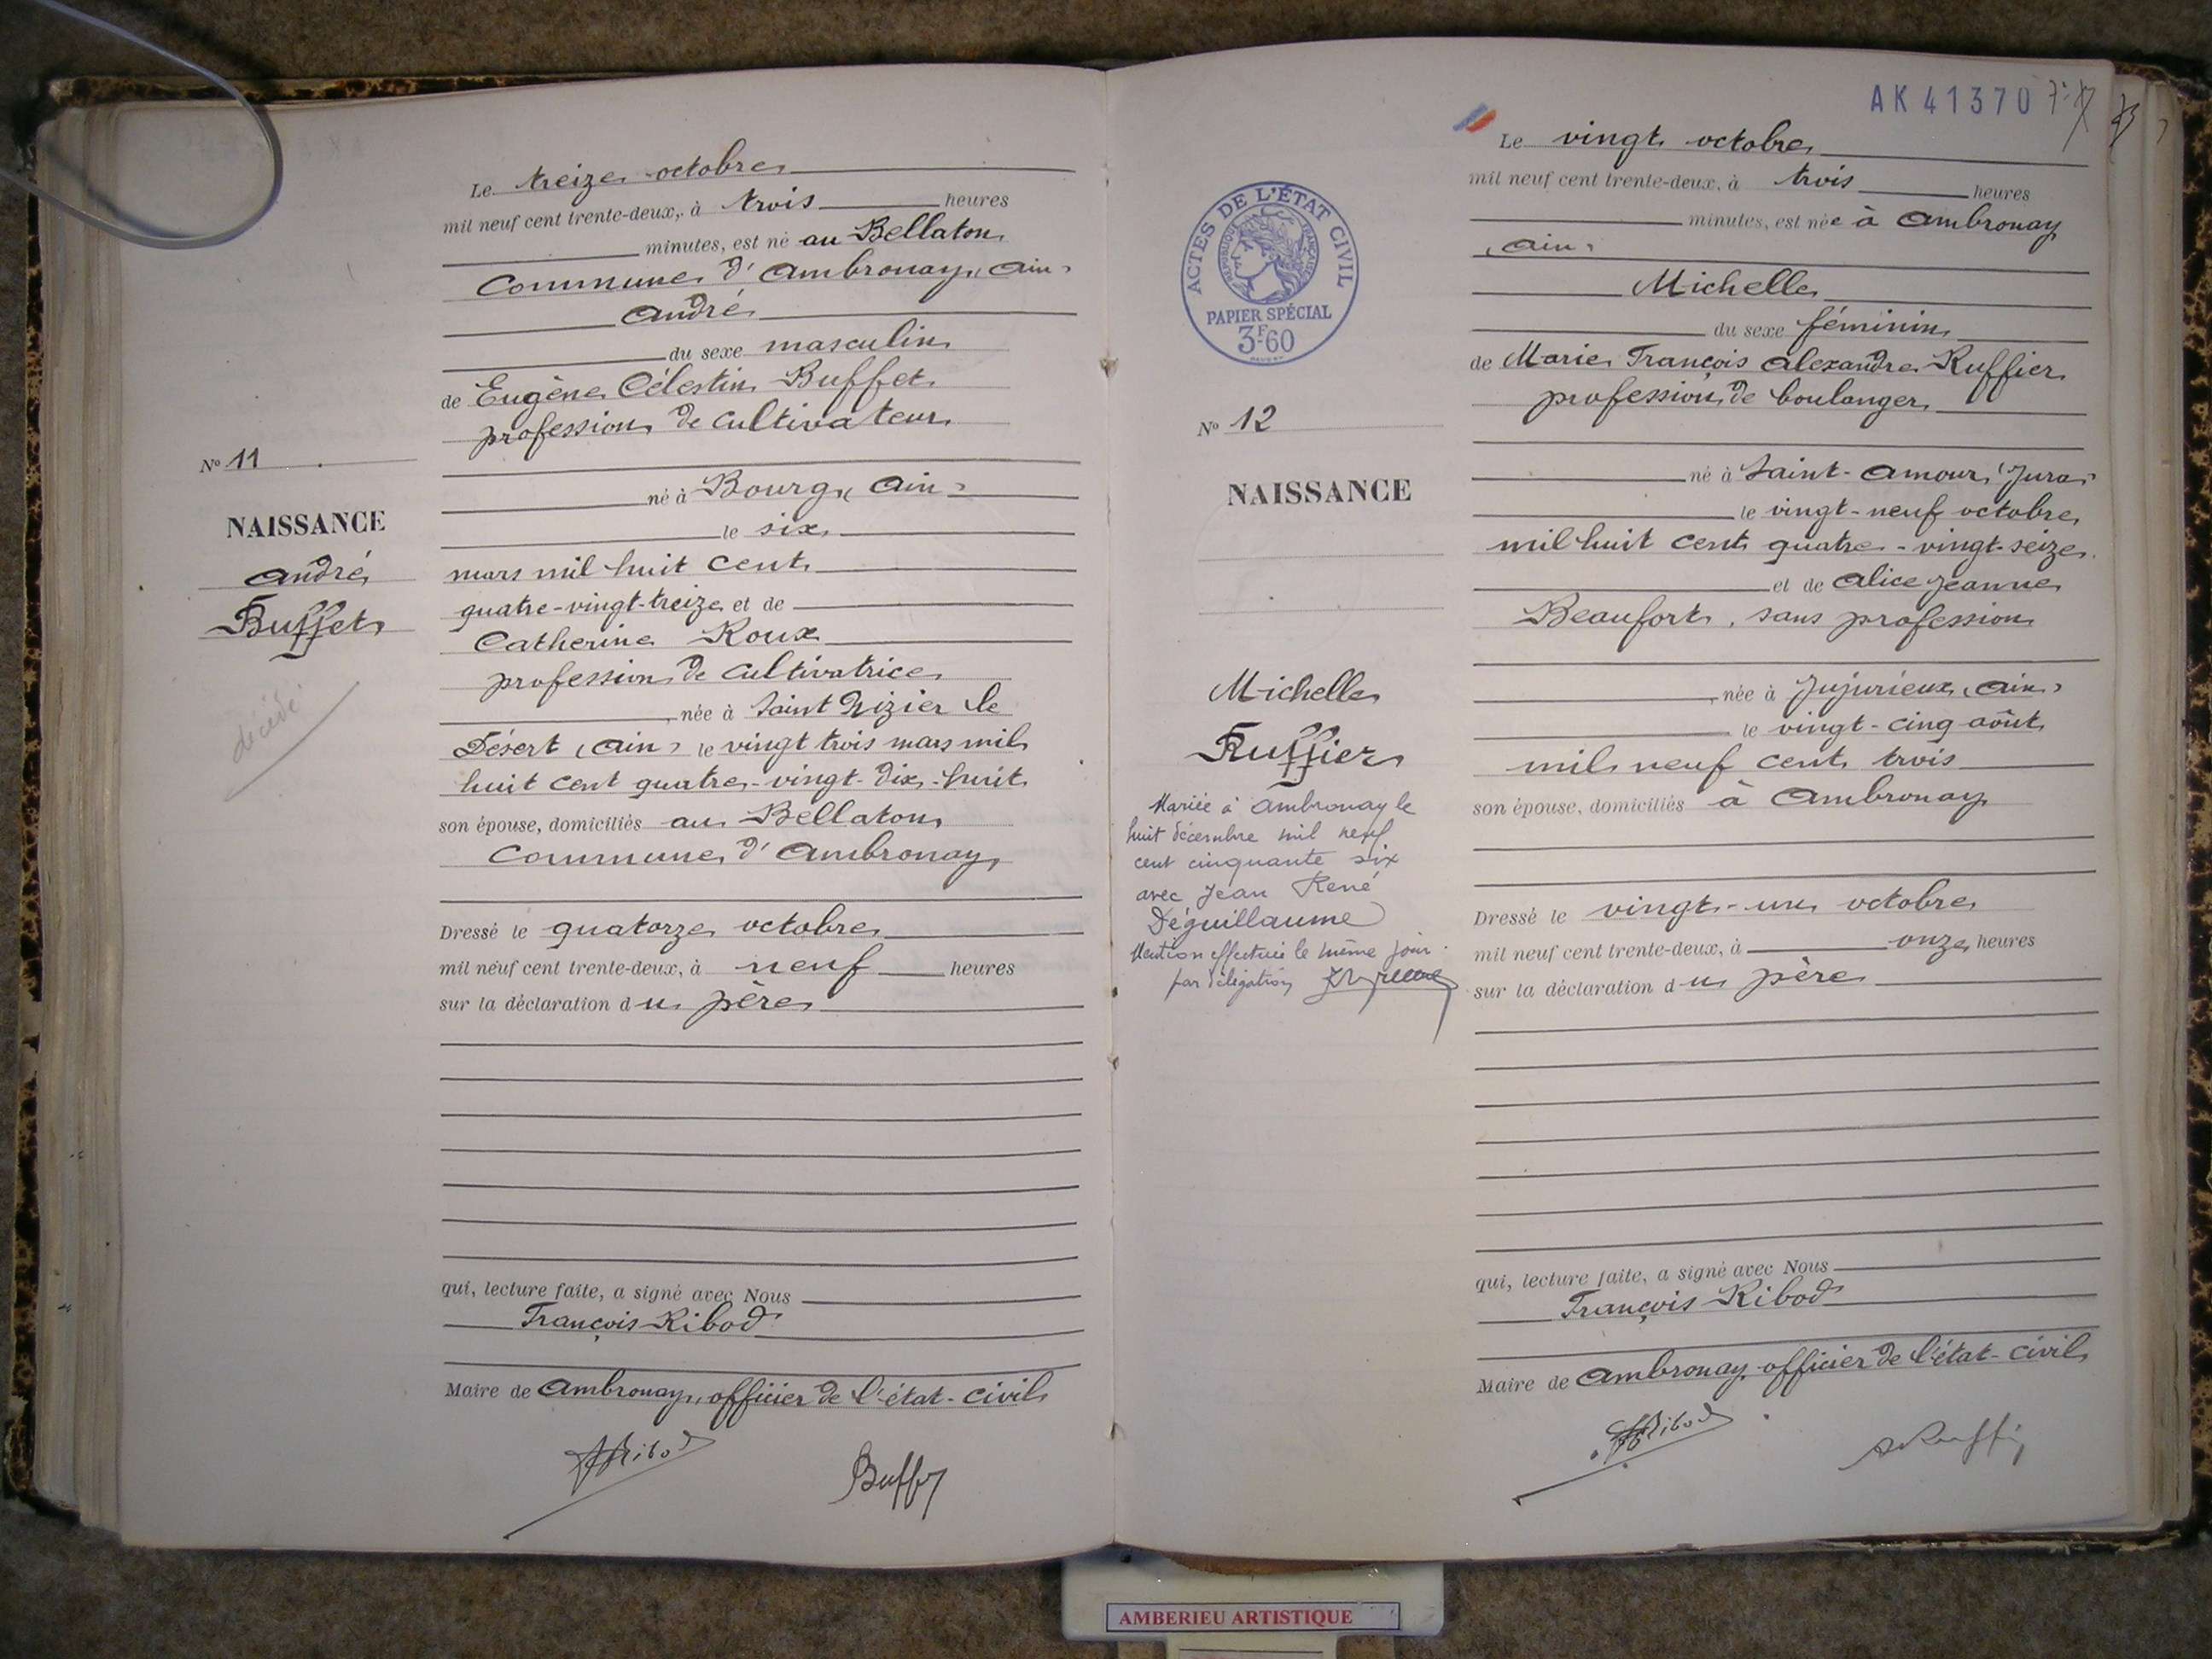 Le treize octobre
mil neuf cent trente-deux, à trois heures
minutes, est né au Bellaton
Commune d'Ambronay (Ain)
André
du sexe masculin
de Eugène Célestin Buffet
profession de cultivateur
né à Bourg (Ain)
le six
mars mil huit cent
quatre-vingt-treize et de
Catherine Roux
profession de cultivatrice
née à Saint Nizier le
Désert (Ain) le vingt trois mars mil
huit cent quatre-vingt-dix-huit
son épouse, domiciliés au Bellaton
Commune d'Ambronay
Dressé le quatorze octobre
mil neuf cent trente-deux, à neuf heures
sur la déclaration du père
qui, lecture faite, a signé avec Nous
François Ribod
Maire de Ambronay, officier de l'état-civil
Ribod
Buffet
No 11
NAISSANCE
André
Buffet
décédé
AK 41370
Le vingt octobre
mil neuf cent trente-deux, à trois heures
minutes, est née à Ambronay
(Ain)
Michelle
du sexe féminin
de Marie François Alexandre Ruffier
profession de boulanger
né à Saint-Amour (Jura)
le vingt-neuf octobre
mil huit cent quatre-vingt-seize
et de Alice Jeanne
Beaufort, sans profession
née à Jujurieux (Ain)
le vingt-cinq août
mil neuf cent trois
son épouse, domiciliés à Ambronay
Dressé le vingt-un octobre
mil neuf cent trente-deux, à onze heures
sur la déclaration du père
qui, lecture faite, a signé avec Nous
François Ribod
Maire de Ambronay officier de l'état-civil
Ribod
ACTES DE L'ÉTAT CIVIL
RÉPUBLIQUE FRANÇAISE
PAPIER SPÉCIAL
3F60
No 12
NAISSANCE
Michelle
Ruffier
Mariée à Ambronay le
huit décembre mil neuf
cent cinquante six
avec Jean René
Déguillaume
Mention effectuée le même jour.
par délégation
AMBERIEU ARTISTIQUE